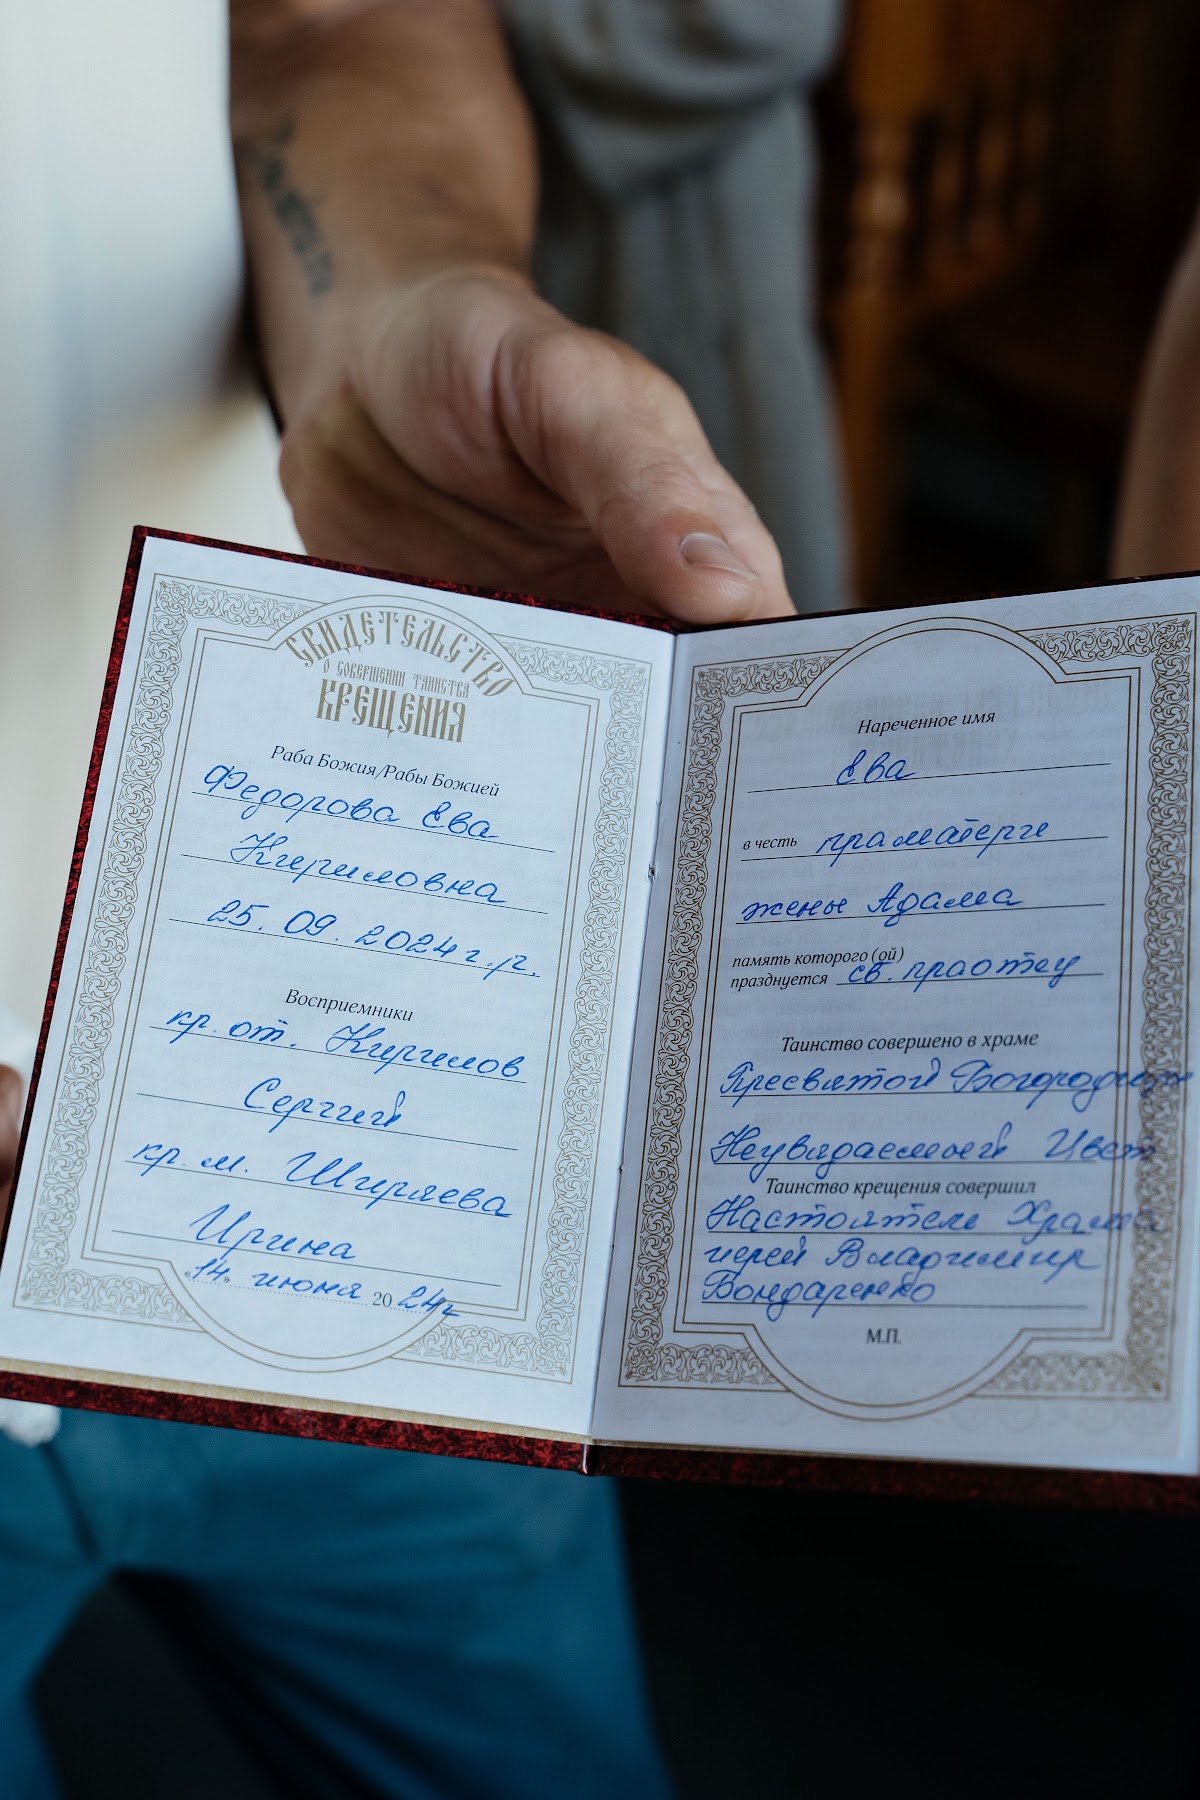 СВИДЕТЕЛЬСТВО
О СОВЕРШЕНИИ ТАИНСТВА
КРЕЩЕНИЯ
Раба Божия/Рабы Божией
Федорова Ева
Кириловна
25.09.2024г.р.
Восприемники
кр. от. Кирилов
Сергий
кр. м. Ширяева
Ирина
«14» июня 2024г
Нареченное имя
Ева
в честь праматери
жены Адама
память которого (ой)
празднуется св. праотец
Таинство совершено в храме
Пресвятой Богородицы
Неувядаемый Цвет
Таинство крещения совершил
Настоятель Храма
иерей Владимир
Бондаренко
М.П.